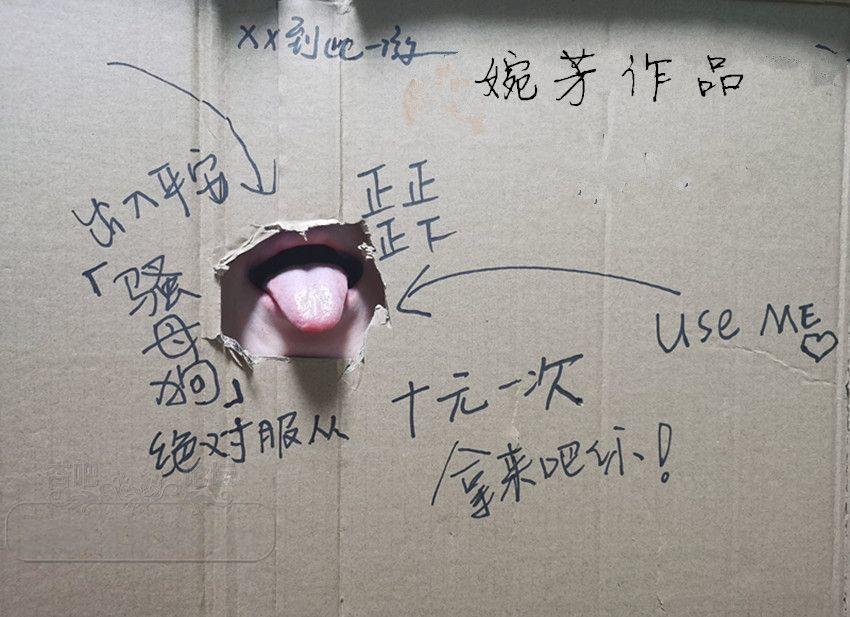 ××到此一游
婉芳作品
出入平安
正正
正下
「骚
母
狗」
绝对服从
USe ME♡
十元一次
拿来吧你!